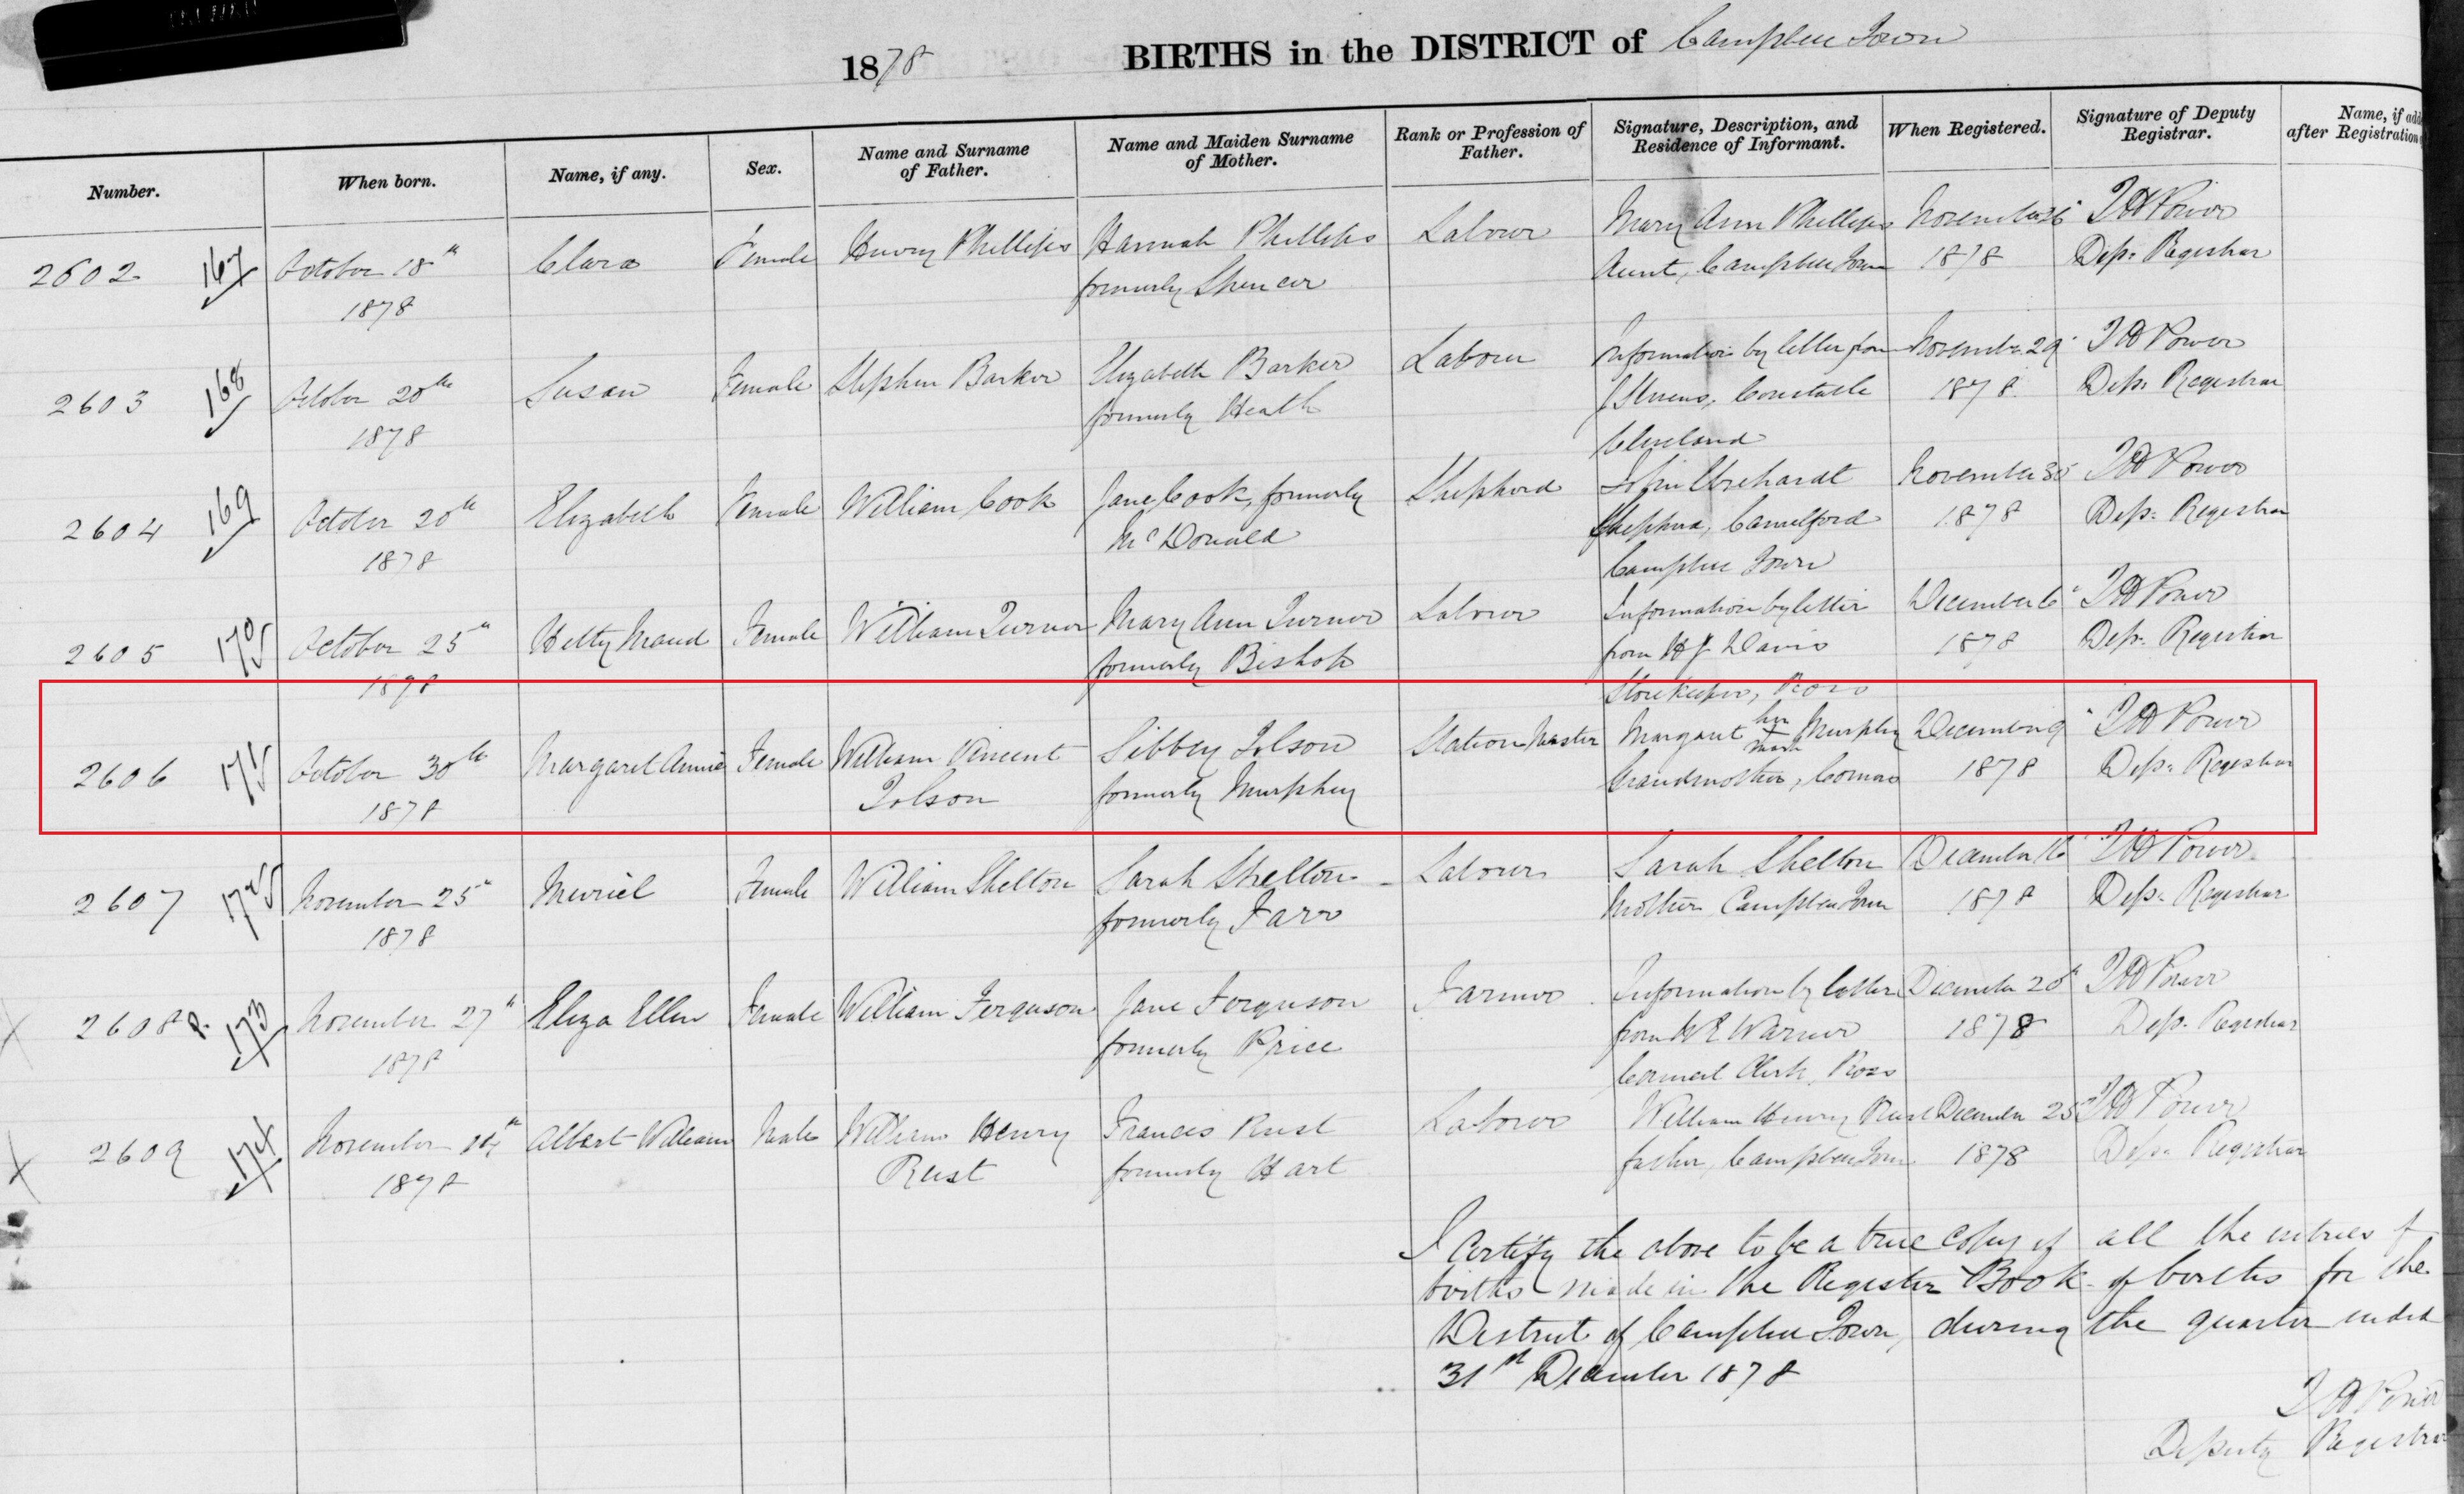 1878 BIRTHS in the DISTRICT of Campbell Town
Number. When born. Name, if any. Sex. Name and Surname of Father. Name and Maiden Surname of Mother. Rank or Profession of Father. Signature, Description, and Residence of Informant. When Registered. Signature of Deputy Registrar. Name, if add after Registration
2602 167 October 18th Clara Female Henry Phillips Hannah Phillips Labour Mary Ann Phillips November 26" Power
1878 formerly Spencer Aunt, Campbell Town 1878 Dep. Registrar
2603 168 October 20th Susan Female Stephen Barker Elizabeth Barker Labour Information by letter from November 29" Power
1878 formerly Heath J Stevens, Constable 1878 Dep. Registrar
Cleveland
2604 169 October 20th Elizabeth Female William Cook Jane Cook, formerly Shepherd John November 30" Power
1878 McDonald Shepherd, Camelford 1878 Dep. Registrar
Campbell Town
2605 170 October 25th Hetty Maud Female William Turner Mary Ann Turner Labour Information by letter December 6" Power
1878 formerly Bishop from H J Davis 1878 Dep. Registrar
Storekeeper, Ross
2606 171 October 30th Margaret Annie Female William Vincent Sibbey Tolson Station Master Margaret her mark Murphy December 9" Power
1878 Tolson formerly Murphey Grandmother, Conara 1878 Dep. Registrar
2607 172 November 25th Muriel Female William Shelton Sarah Shelton Labour Sarah Shelton December 16" Power
1878 formerly Farr Mother Campbell Town 1878 Dep. Registrar
2608 173 November 27th Eliza Ellen Female William Ferguson Jane Ferguson Farmer Information by letter December 20" Power
1878 formerly Price from W E Warner 1878 Dep. Registrar
Council Clerk, Ross
2609 174 November Albert William Male William Henry Frances Rust Labour William Henry Rust December 25" Power
1878 Rust formerly Hart father, Campbell Town 1878 Dep. Registrar
I certify the above to be a true copy of all the entries of
births made in the Register Book of births for the
District of Campbell Town, during the quarter ended
31st December 1878
Power
Deputy Registrar